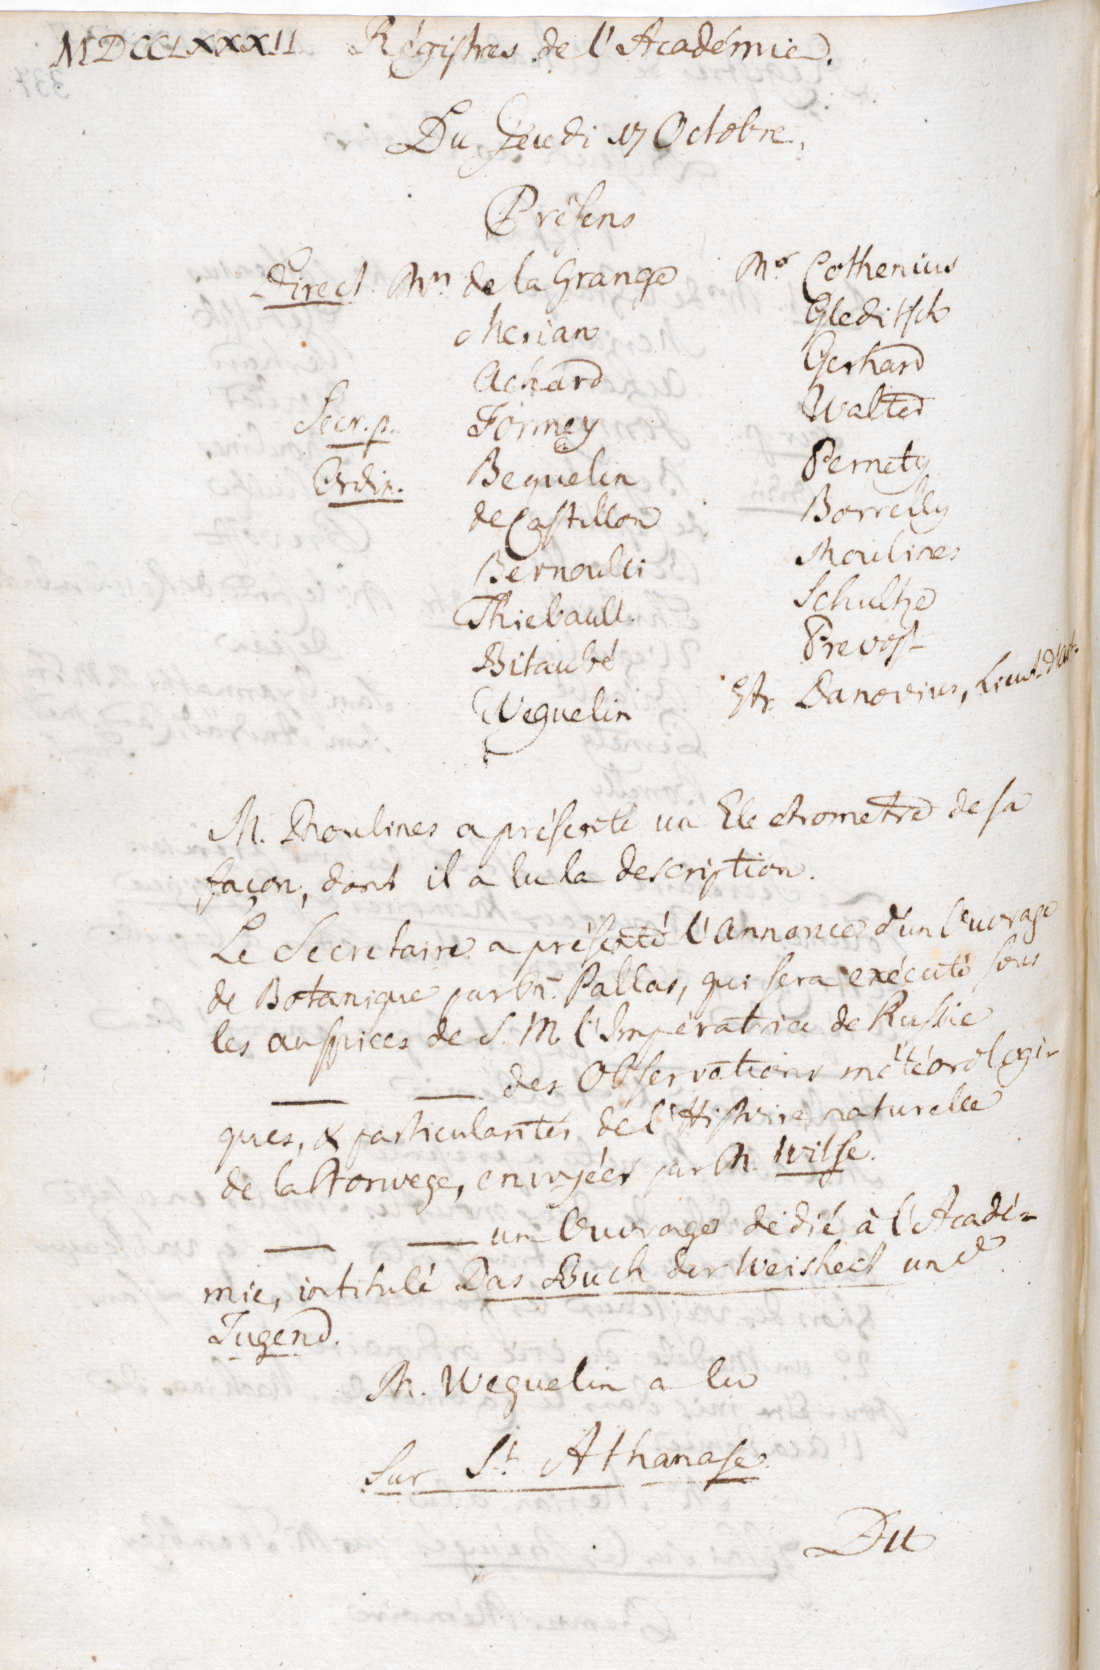 MDCCLXXXII Régistres de l'Académie.
Du Jeudi 17 Octobre.
Présens
Direct. Mrs de la Grange
Merian
Achard
Secr. p. Formey
Ordin. Beguelin
de Castillon
Bernoulli
Thiebault
Bitaubé
Weguelin
Mrs Cothenius
Gleditsch
Gerhard
Walter
Pernety
Borrelly
Moulines
Schultze
Prevost
Etr. Danovius, Lieut. d'Art.
M. Moulines a présenté un Electrometre de sa
façon, dont il a lu la description.
Le Secretaire a présenté l'Annonce d'un Ouvrage
de Botanique par Mr. Pallas, qui sera exécuté sous
les auspices de S. M. l'Impératrice de Russie
— — des Observations météorologi-
ques, & particularités de l'Histoire naturelle
de la Norwege, envoyées par M. Wilse.
— — un Ouvrage dédié à l'Acadé-
mie, intitulé Das Buch der Weisheit und
Tugend.
M. Weguelin a lu
Sur St. Athanase.
Du